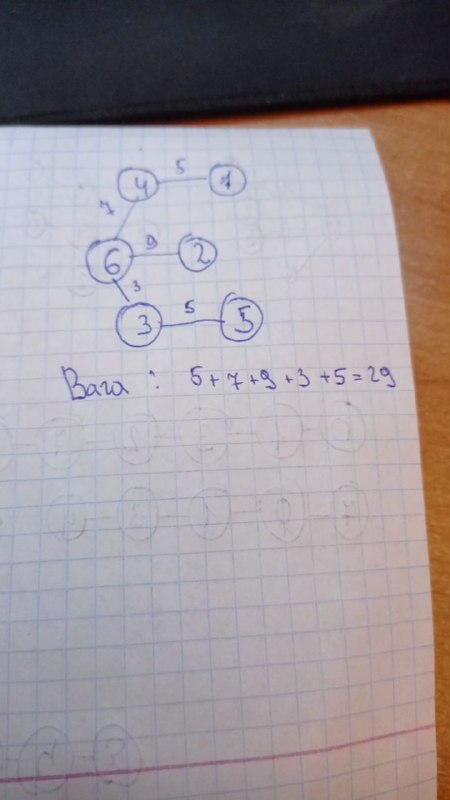 5
4 1
7
6 9 2
3
3 5 5
Вага : 5+7+9+3+5=29